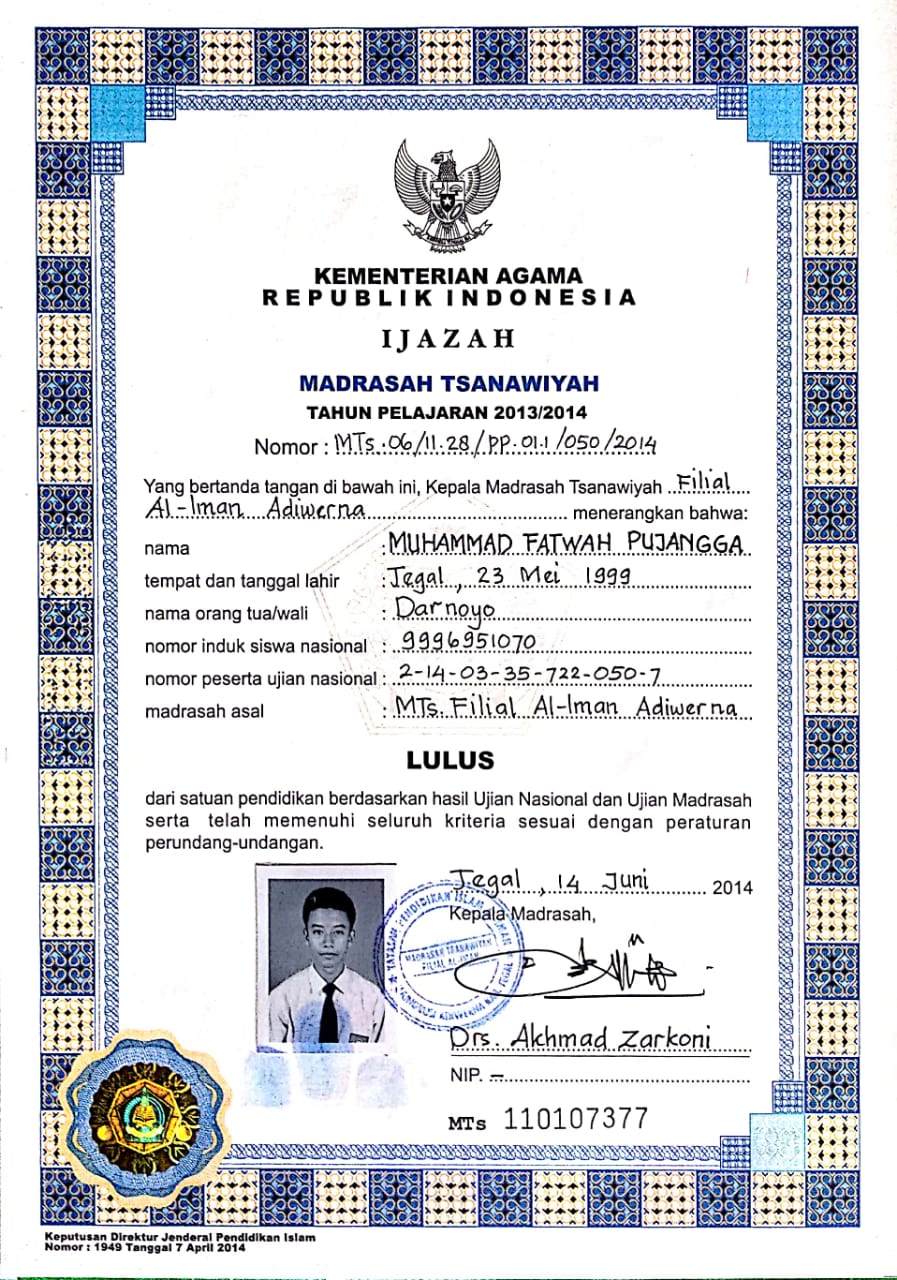 KEMENTERIAN AGAMA
REPUBLIK INDONESIA
IJAZAH
MADRASAH TSANAWIYAH
TAHUN PELAJARAN 2013/2014
Nomor : MTs.06/11.28/PP.01.1/050/2014
Yang bertanda tangan di bawah ini, Kepala Madrasah Tsanawiyah Filial
Al-Iman Adiwerna menerangkan bahwa:
nama : MUHAMMAD FATWAH PUJANGGA
tempat dan tanggal lahir : Tegal, 23 Mei 1999
nama orang tua/wali : Darnoyo
nomor induk siswa nasional : 9996951070
nomor peserta ujian nasional : 2-14-03-35-722-050-7
madrasah asal : MTs. Filial Al-Iman Adiwerna
LULUS
dari satuan pendidikan berdasarkan hasil Ujian Nasional dan Ujian Madrasah
serta telah memenuhi seluruh kriteria sesuai dengan peraturan
perundang-undangan.
Tegal, 14 Juni 2014
Kepala Madrasah,
YAYASAN PENDIDIKAN ISLAM
MADRASAH TSANAWIYAH
FILIAL AL-IMAN
Drs. Akhmad Zarkoni
NIP. –
MTs 110107377
Keputusan Direktur Jenderal Pendidikan Islam
Nomor : 1949 Tanggal 7 April 2014